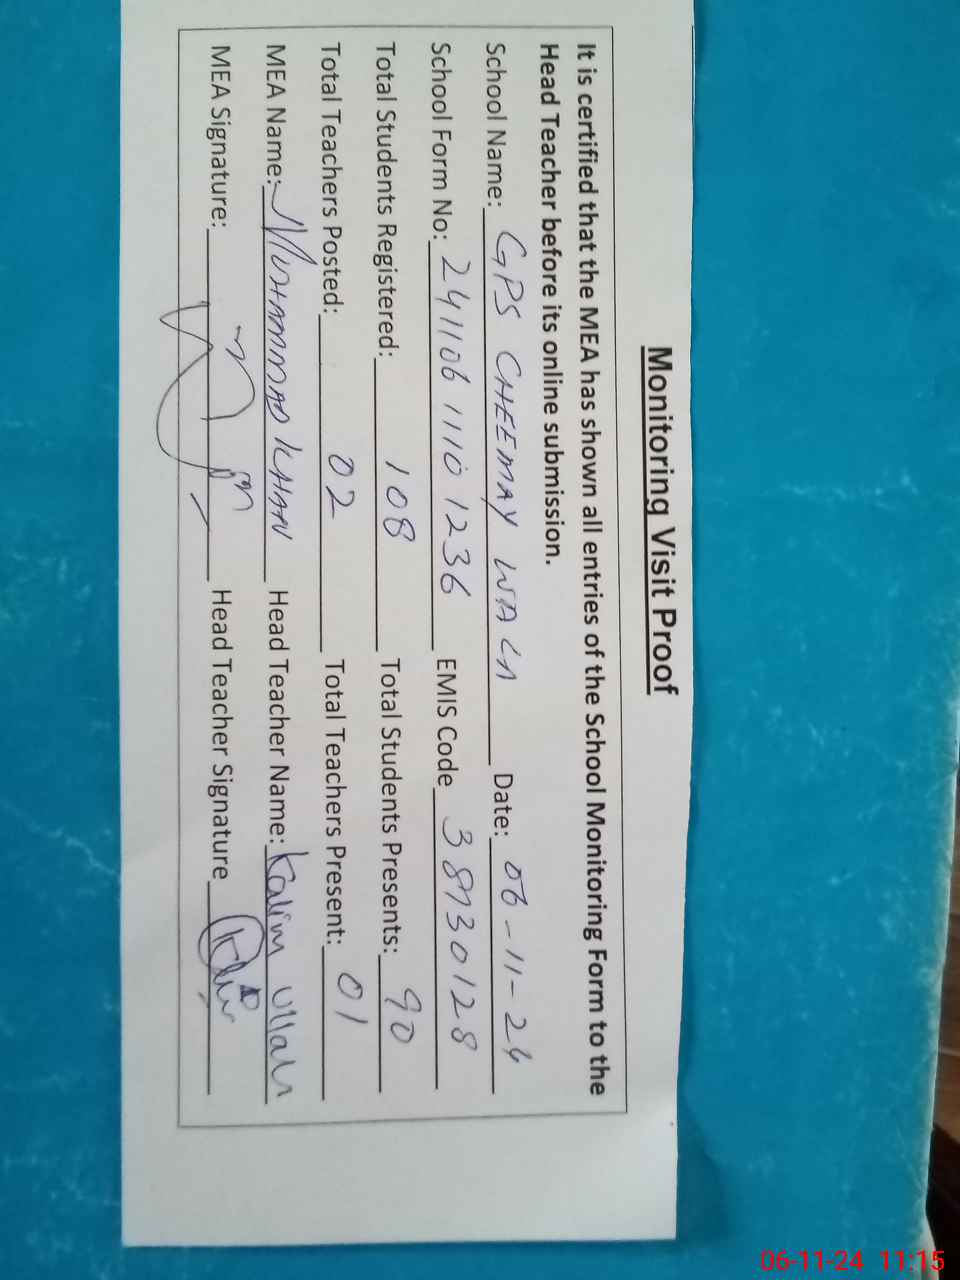 Monitoring Visit Proof
It is certified that the MEA has shown all entries of the School Monitoring Form to the
Head Teacher before its online submission.
School Name: GPS CHEEMAY WALA Date: 06-11-24
School Form No: 2411061110 1236 EMIS Code 38730128
Total Students Registered: 108 Total Students Presents: 90
Total Teachers Posted: 02 Total Teachers Present: 01
MEA Name: MUHAMMAD KHAN Head Teacher Name: Kalim Ullah
MEA Signature: Head Teacher Signature
06-11-24 11:15